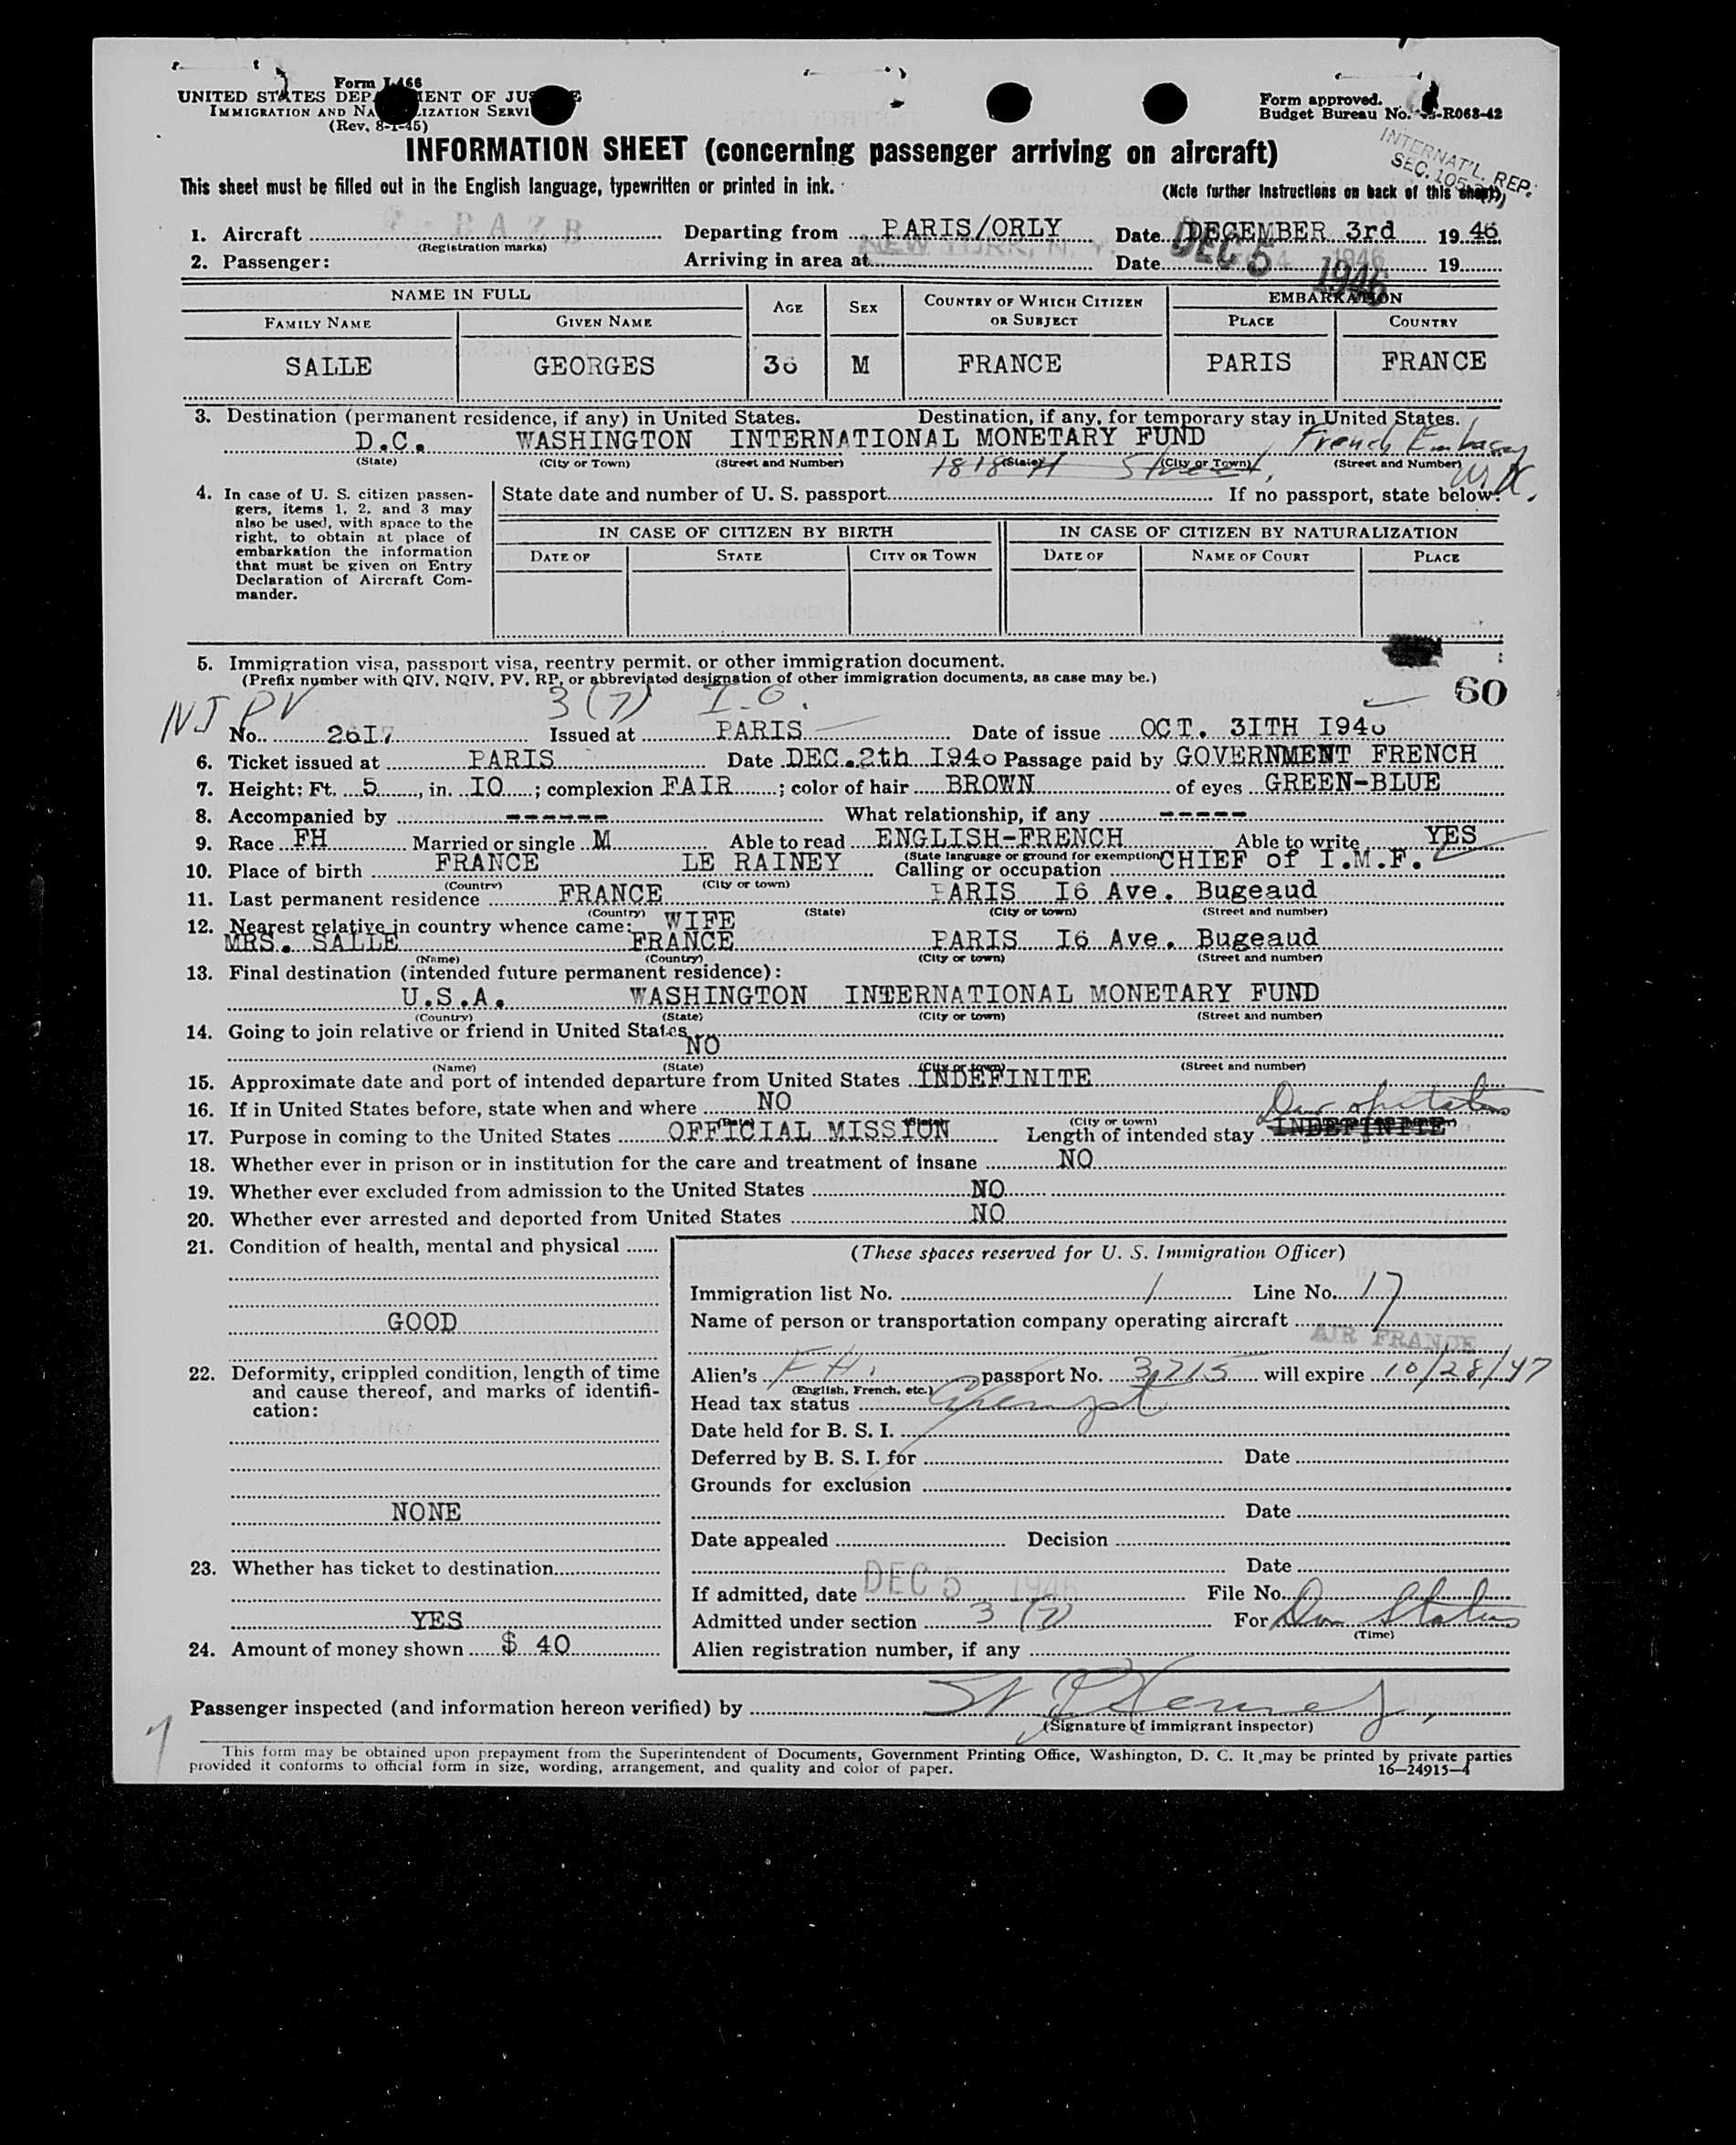 Form I-466
UNITED STATES DEP MENT OF JUS E
IMMIGRATION AND NA IZATION SERVI
(Rev. 8-1-45)
Form approved.
Budget Bureau No. -R068-42
INTERNAT'L. REP.
SEC. 105
INFORMATION SHEET (concerning passenger arriving on aircraft)
This sheet must be filled out in the English language, typewritten or printed in ink. (Note further instructions on back of this sheet)
F - BAZB
1. Aircraft Departing from PARIS/ORLY Date DECEMBER 3rd 19 46
(Registration marks)
NEW YORK, N. Y. DEC 5 1946
2. Passenger: Arriving in area at Date 19
NAME IN FULL AGE SEX COUNTRY OF WHICH CITIZEN OR SUBJECT EMBARKATION
FAMILY NAME GIVEN NAME PLACE COUNTRY
SALLE GEORGES 36 M FRANCE PARIS FRANCE
3. Destination (permanent residence, if any) in United States. Destination, if any, for temporary stay in United States.
D.C. WASHINGTON INTERNATIONAL MONETARY FUND French Embassy
(State) (City or Town) (Street and Number) (State) (City or Town) (Street and Number)
1818 H Street,
4. In case of U. S. citizen passengers, items 1, 2, and 3 may also be used, with space to the right, to obtain at place of embarkation the information that must be given on Entry Declaration of Aircraft Commander.
State date and number of U. S. passport If no passport, state below:
IN CASE OF CITIZEN BY BIRTH IN CASE OF CITIZEN BY NATURALIZATION
DATE OF STATE CITY OR TOWN DATE OF NAME OF COURT PLACE
5. Immigration visa, passport visa, reentry permit, or other immigration document.
(Prefix number with QIV, NQIV, PV, RP, or abbreviated designation of other immigration documents, as case may be.)
60
PV 3(7) I.O.
No. 2617 Issued at PARIS Date of issue OCT. 3ITH I946
6. Ticket issued at PARIS Date DEC. 2th I946 Passage paid by GOVERNMENT FRENCH
7. Height: Ft. 5, in. IO; complexion FAIR; color of hair BROWN of eyes GREEN-BLUE
8. Accompanied by ------ What relationship, if any -----
9. Race FH Married or single M Able to read ENGLISH-FRENCH Able to write YES
(State language or ground for exemption)
10. Place of birth FRANCE LE RAINEY Calling or occupation CHIEF of I.M.F.
(Country) (City or town)
11. Last permanent residence FRANCE PARIS I6 Ave. Bugeaud
(Country) (State) (City or town) (Street and number)
12. Nearest relative in country whence came: WIFE
MRS. SALLE FRANCE PARIS I6 Ave. Bugeaud
(Name) (Country) (City or town) (Street and number)
13. Final destination (intended future permanent residence):
U.S.A. WASHINGTON INTERNATIONAL MONETARY FUND
(Country) (State) (City or town) (Street and number)
14. Going to join relative or friend in United States
NO
(Name) (State) (City or town) (Street and number)
15. Approximate date and port of intended departure from United States INDEFINITE
16. If in United States before, state when and where NO
(City or town)
Dur of status
17. Purpose in coming to the United States OFFICIAL MISSION Length of intended stay INDEFINITE
18. Whether ever in prison or in institution for the care and treatment of insane NO
19. Whether ever excluded from admission to the United States NO
20. Whether ever arrested and deported from United States NO
21. Condition of health, mental and physical
GOOD
22. Deformity, crippled condition, length of time and cause thereof, and marks of identification:
NONE
23. Whether has ticket to destination
YES
24. Amount of money shown $ 40
(These spaces reserved for U. S. Immigration Officer)
Immigration list No. 1 Line No. 17
Name of person or transportation company operating aircraft
AIR FRANCE
Alien's FH. passport No. 3715 will expire 10/28/47
(English, French, etc.)
Head tax status Exempt
Date held for B. S. I.
Deferred by B. S. I. for Date
Grounds for exclusion
Date
Date appealed Decision
Date
If admitted, date DEC 5 1946 File No.
Admitted under section 3 (7) For Dur Status
(Time)
Alien registration number, if any
Passenger inspected (and information hereon verified) by
(Signature of immigrant inspector)
This form may be obtained upon prepayment from the Superintendent of Documents, Government Printing Office, Washington, D. C. It may be printed by private parties
provided it conforms to official form in size, wording, arrangement, and quality and color of paper. 16—24915-4